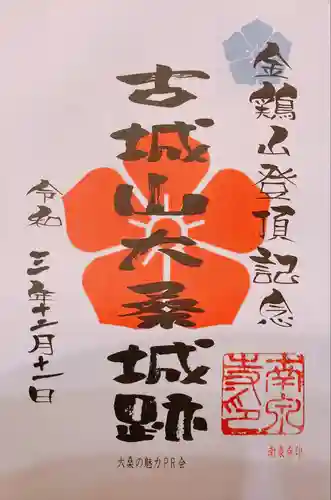 金鶏山登頂記念
古城山大桑城跡
令和三年十二月十一日
南泉寺印
南泉寺印
大桑の魅力PR会